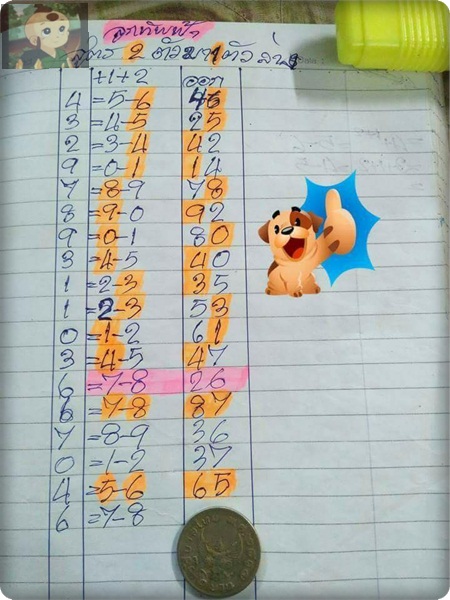 ลูกทัพฟ้า
สูตร 2 ตัวมา 1 ตัว ล่าง
+1+2 ออก
4 =5-6 46
3 =4-5 25
2 =3-4 42
9 =0-1 14
7 =8-9 78
8 =9-0 92
9 =0-1 80
3 =4-5 40
1 =2-3 35
1 =2-3 53
0 =1-2 61
3 =4-5 47
6 =7-8 26
6 =7-8 87
7 =8-9 36
0 =1-2 37
4 =5-6 65
6 =7-8